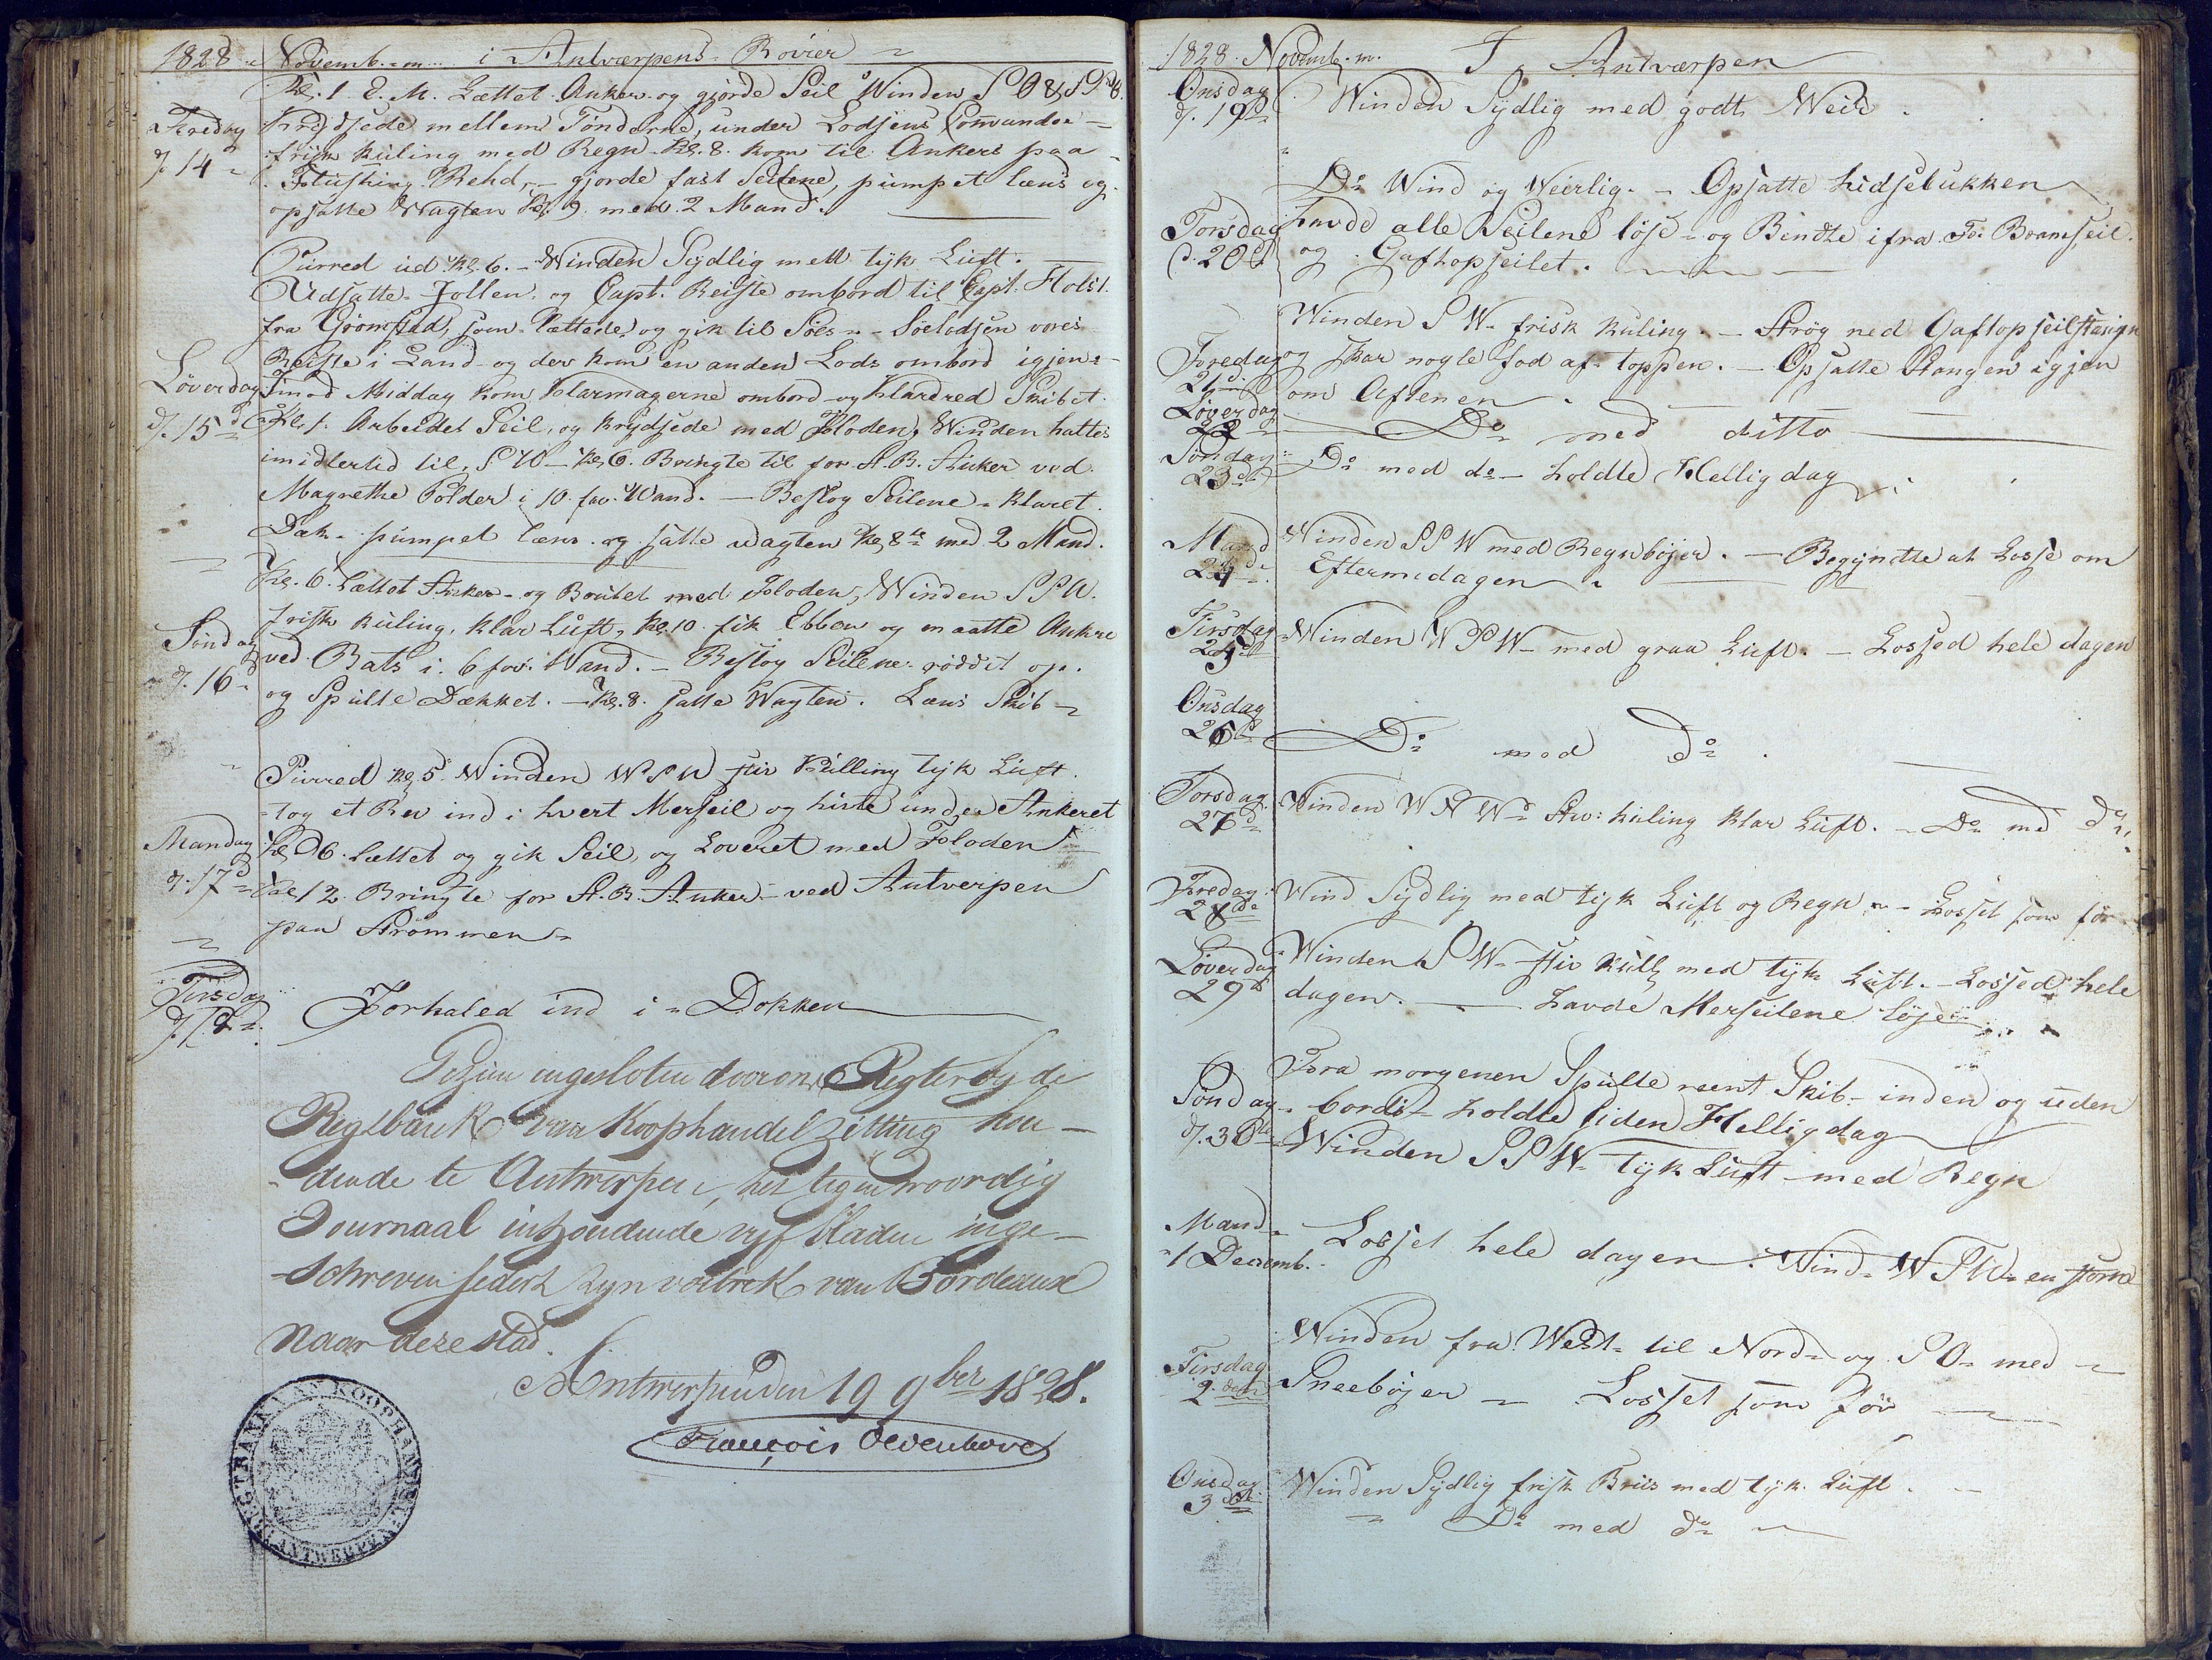 1828 Novemb. m. i Antværpens Rovier
Kl. 1 E. M. Lættet Anker og gjorde Seil Winden S O & S
Fredag Krydsede mellem Tønderne, under Lodsens Comando
d. 14 frisk kuling med Regn Kl. 8. kom til Ankers paa
Flushing Rehd, gjorde fast Seilene, pumpet læns og
opsatte Wagten Kl. 9 med 2 Mand.
Purred ud Kl. 6. Winden Sydlig med tyk Luft.
Udsatte Jollen og Capt. Reiste ombord til Capt. Holst
fra Groomstad, som lættede og gik til Søes - Søelodsen vores
Reiste i Land og der kom en anden Lods ombord igjen
Løverdag imod Middag kom Klarmagerne ombord og Klardred Skibet
d. 15 Kl. 1. Arbeidet Seil, og krydsede med Floden, Winden hattes
imidlertid til S W - Kl. 6. Bringte til for S. B. Anker ved
Magrethe Polder i 10 fav. Wand. - Beslog Seilene - klaret
Dæk - pumpet læns og satte wagten Kl. 8 med 2 Mand.
Kl. 6. Lættet Anker og Boutet med Floden, Winden S S W.
frisk kuling, klar Luft, Kl. 10 fik Ebben og maatte Ankre
Søndag ved Bats i 6 fav. Wand. - Beslog Seilene røddit op.
d. 16 og Spulte Dækket. - Kl. 8. satte Wagten. Læns Skib
Purred Kl. 5 Winden W S W stiv Kulling tyk Luft.
tog et Rev ind i hvert Merseil og hivte under Ankeret
Mandag Kl. 6. Lættet og gik Seil, og Loveret med Floden
d. 17 Kl. 12 Bringte for S. B. Anker ved Antverpen
paa Strømmen
Tirsdag
d. 18 Forhaled ind i Dokken
Gezien ingesloten door ons Regter by de
Regtbank van Koophandel zetting hou-
dende te Antwerpen, het tegenwoordig
Journaal inhoudende vyf bladen inge-
schreven sedert zyn vertrek van Bordeaux
naar deze stad.
Antwerpen den 19 9ber 1828.
François
REGTBANK VAN KOOPHANDEL ANTWERPEN
1828. Novemb. m. I Antværpen
Onsdag
d. 19 Winden Sydlig med godt Weir
Do Wind og Weirlig. - Opsatte hidselukken
Torsdag havde alle Seilene løse - og Bindte ifra Bramseil
d. 20 og Gaftopseilet.
Winden S W frisk kuling. - Strøg ned Gaftopseilstangen
Fredag og skar nogle fod af toppen. - Opsatte Stangen igjen
21 om Aftenen
Løverdag
22 Do med ditto
Søndag
23 Do med do - holdte Hellig dag
Mand Winden S S W med Regnbøjer. - Begyndte at Losse om
24 Eftermidagen
Tirsdag Winden W S W med graa Luft. - Lossed hele dagen
25
Onsdag
26 Do med do
Torsdag Winden W N W kuling klar Luft. - Do med do
27
Fredag Wind Sydlig med tyk Luft og Regn - Losset som før
28
Løverdag Winden S W stiv kulg med tyk Luft. - Lossed hele
29 dagen. - havde Merseilene løse
Fra morgenen Spulte reent Skib inden og uden
Søndag bords - holdte siden Hellig dag
d. 30 Winden S S W tyk Luft med Regn
Mand
1 Decemb. Losset hele dagen. Wind W S W en storm
Winden fra West til Nord og S O med
Tirsdag
2 Sneebøjer - Losset som før
Onsdag Winden Sydlig frisk Briis med tyk Luft.
3 Do med do